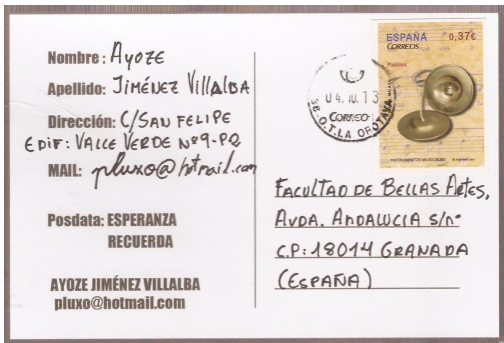 Nombre: Ayoze
Apellido: Jiménez Villalba
Dirección: C/San Felipe
Edif: Valle Verde Nº9-P2
MAIL: pluxo@hotmail.com
Posdata: ESPERANZA
RECUERDA
AYOZE JIMÉNEZ VILLALBA
pluxo@hotmail.com
ESPAÑA 0,37€
CORREOS
Platillos
04.10.13
CORREOS
38-O.T.LA OROTAVA
INSTRUMENTOS MUSICALES
Facultad de Bellas Artes,
Avda. Andalucia s/nº
C.P: 18014 Granada
(España)